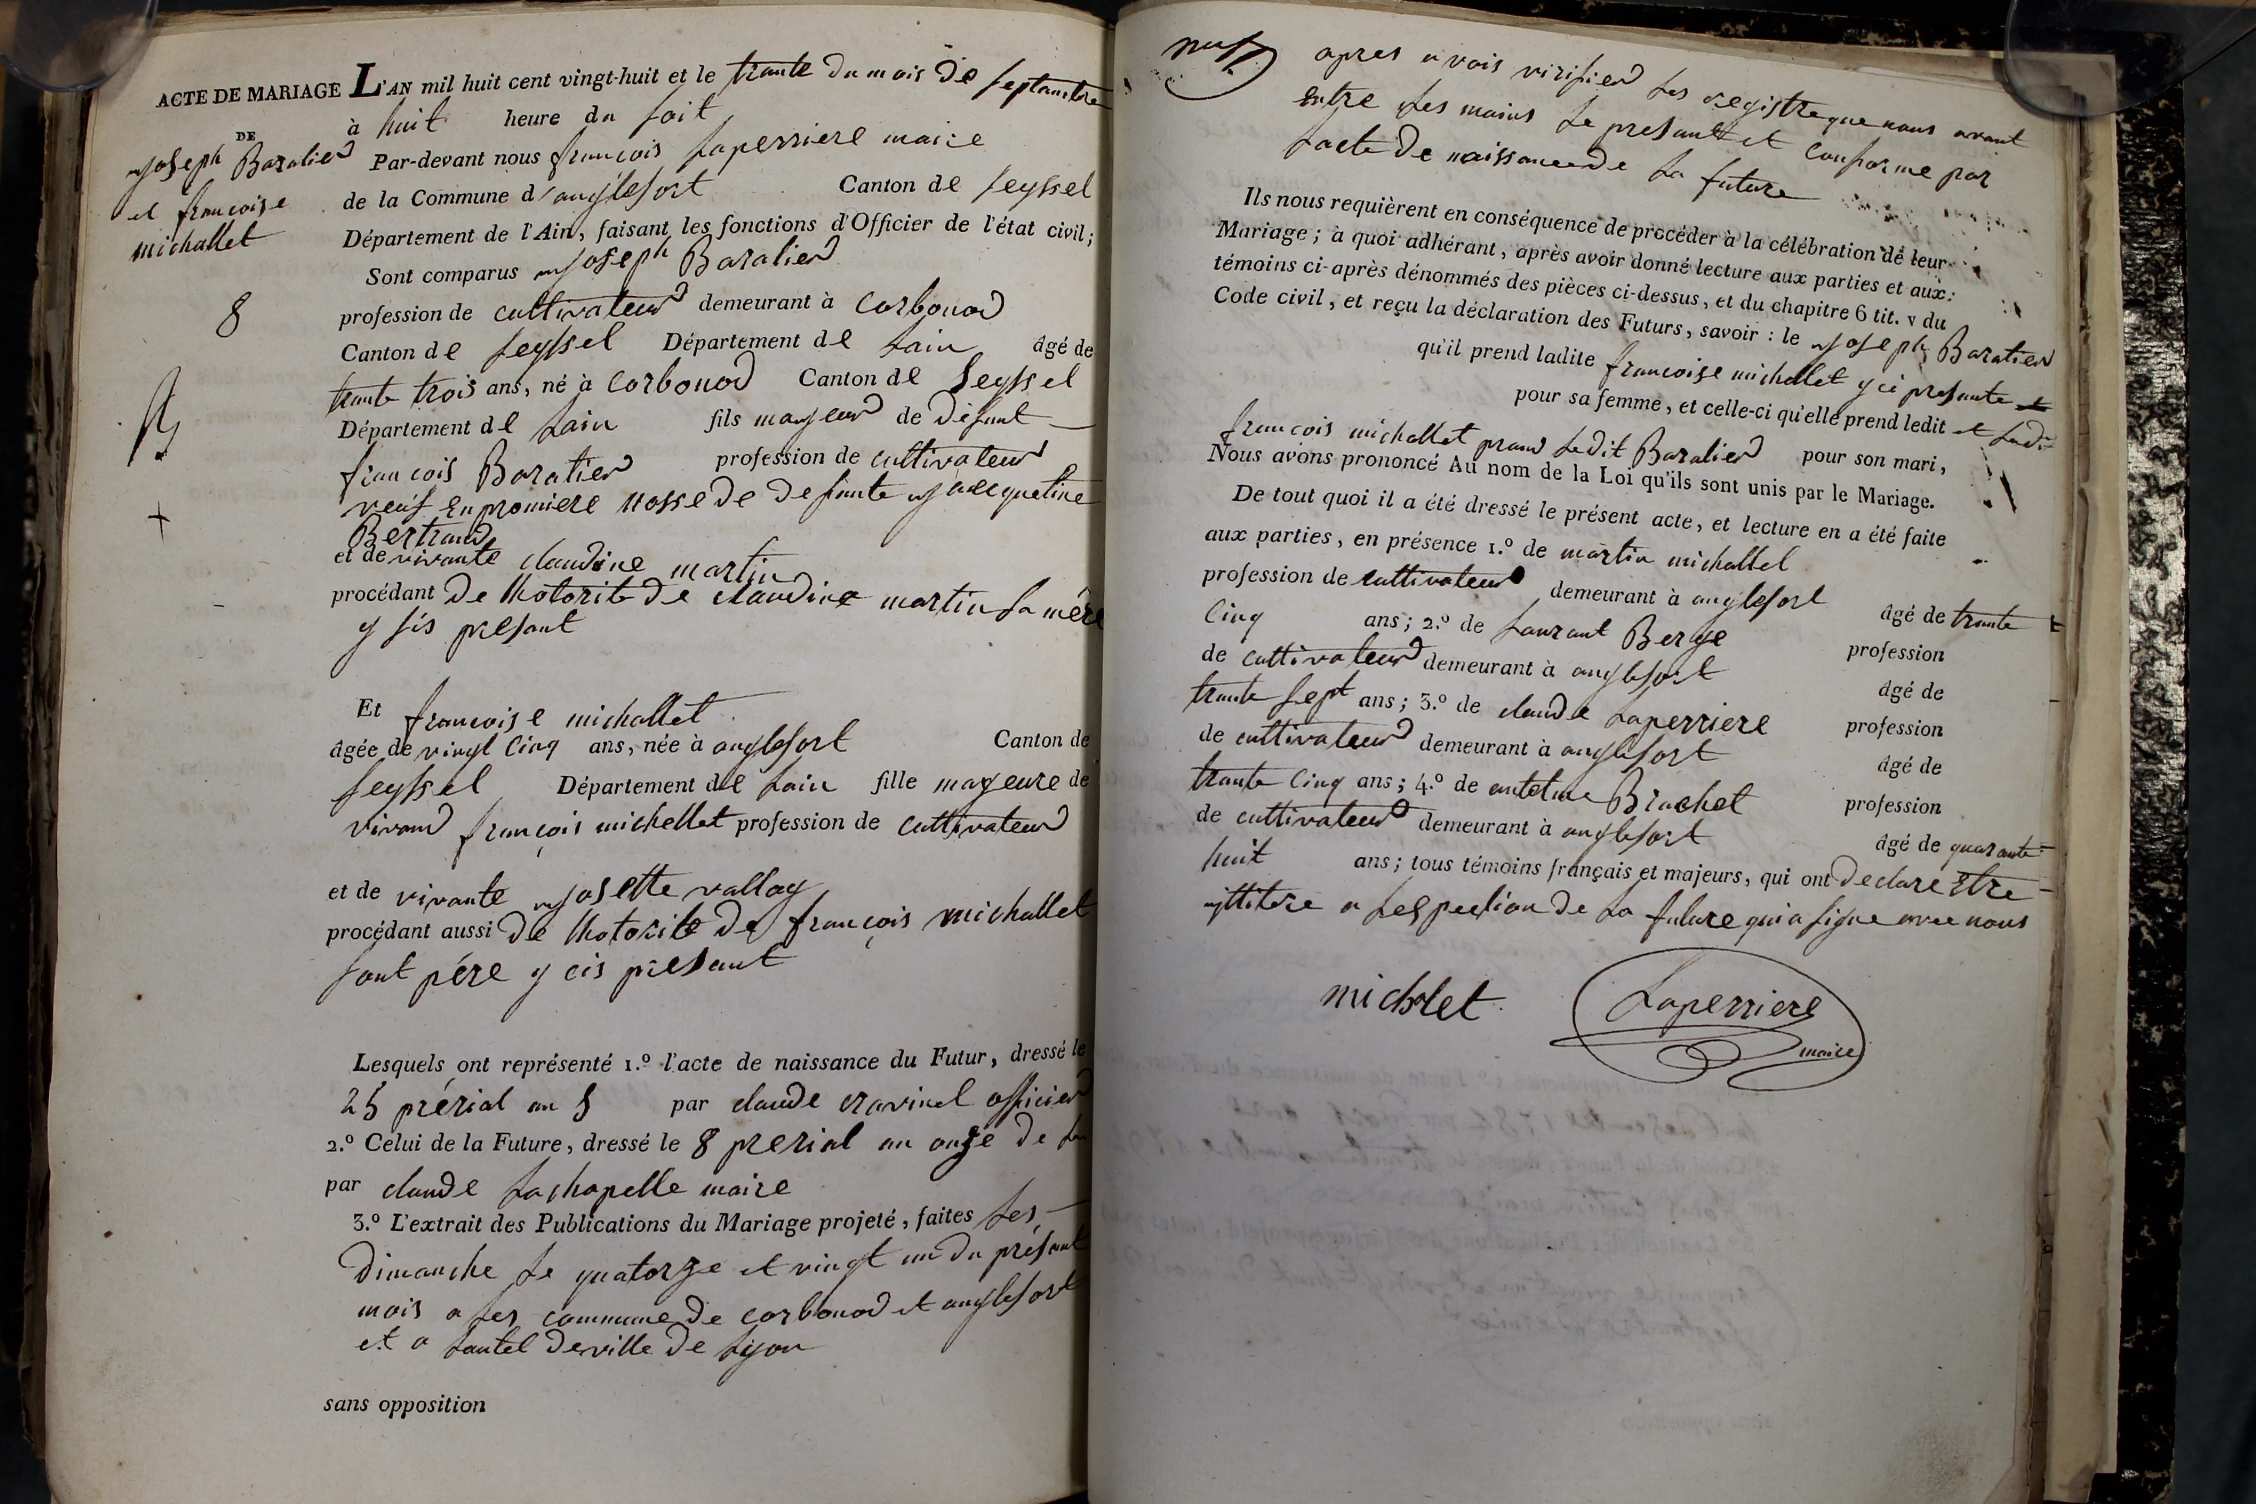 ACTE DE MARIAGE
DE
joseph Baratier
et françoise
michallet
8
L'AN mil huit cent vingt-huit et le trante du mois de septambre
à huit heure du soit
Par-devant nous françois Laperriere maire
de la Commune d'anglefort Canton de seyssel
Département de l'Ain, faisant les fonctions d'Officier de l'état civil;
Sont comparus joseph Baratier
profession de cultivateur demeurant à Corbonod
Canton de seyssel Département de Lain âgé de
trante trois ans, né à Corbonod Canton de Seyssel
Département de Lain fils mayeur de défunt
françois Baratier profession de cultivateur
veuf en promiere nosse de defunte jacqueline
Bertrand
et de vivante claudine martin
procédant de lhotorité de claudine martin sa mére
y sis présant
Et françoise michallet
âgée de vingt cinq ans, née à anglefort Canton de
seyssel Département de Lain fille mayeure de
vivand françois michellet profession de cultivateur
et de vivante josette vallay
procédant aussi de lhotorité de françois michallet
sont pére y cis présant
Lesquels ont représenté 1.º l'acte de naissance du Futur, dressé le
25 prérial an 5 par claude cravinel officier
2.º Celui de la Future, dressé le 8 prerial an onze de
par claude Lachapelle maire
3.º L'extrait des Publications du Mariage projeté, faites les
dimanche le quatorze et vingt un du présant
mois a les commune de corbonod et anglefort
et a lautel deville de Lyon
sans opposition
apres avois virifier les registre que nous avont
entre les mains le presant et conforme par
lacte de naissance de la future
Ils nous requièrent en conséquence de procéder à la célébration de leur
Mariage; à quoi adhérant, après avoir donné lecture aux parties et aux
témoins ci-après dénommés des pièces ci-dessus, et du chapitre 6 tit. v du
Code civil, et reçu la déclaration des Futurs, savoir: le joseph Baratier
qu'il prend ladite francoise michallet y ci presante
pour sa femme, et celle-ci qu'elle prend ledit et ladi
francois michallet prand ledit Baratier pour son mari,
Nous avons prononcé Au nom de la Loi qu'ils sont unis par le Mariage.
De tout quoi il a été dressé le présent acte, et lecture en a été faite
aux parties, en présence 1.º de martin michallet
profession de cultivateur demeurant à anglefort âgé de trante
cinq ans; 2.º de Laurant Berge profession
de cultivateur demeurant à anglefort âgé de
trante sept ans; 3.º de claude Laperriere profession
de cultivateur demeurant à anglefort âgé de
trante cinq ans; 4.º de antelme Brachet profession
de cultivateur demeurant à anglefort âgé de quarante
huit ans; tous témoins français et majeurs, qui ont declare être
jllitere a lespection de la future qui a signe avec nous
michalet Laperriere
maire